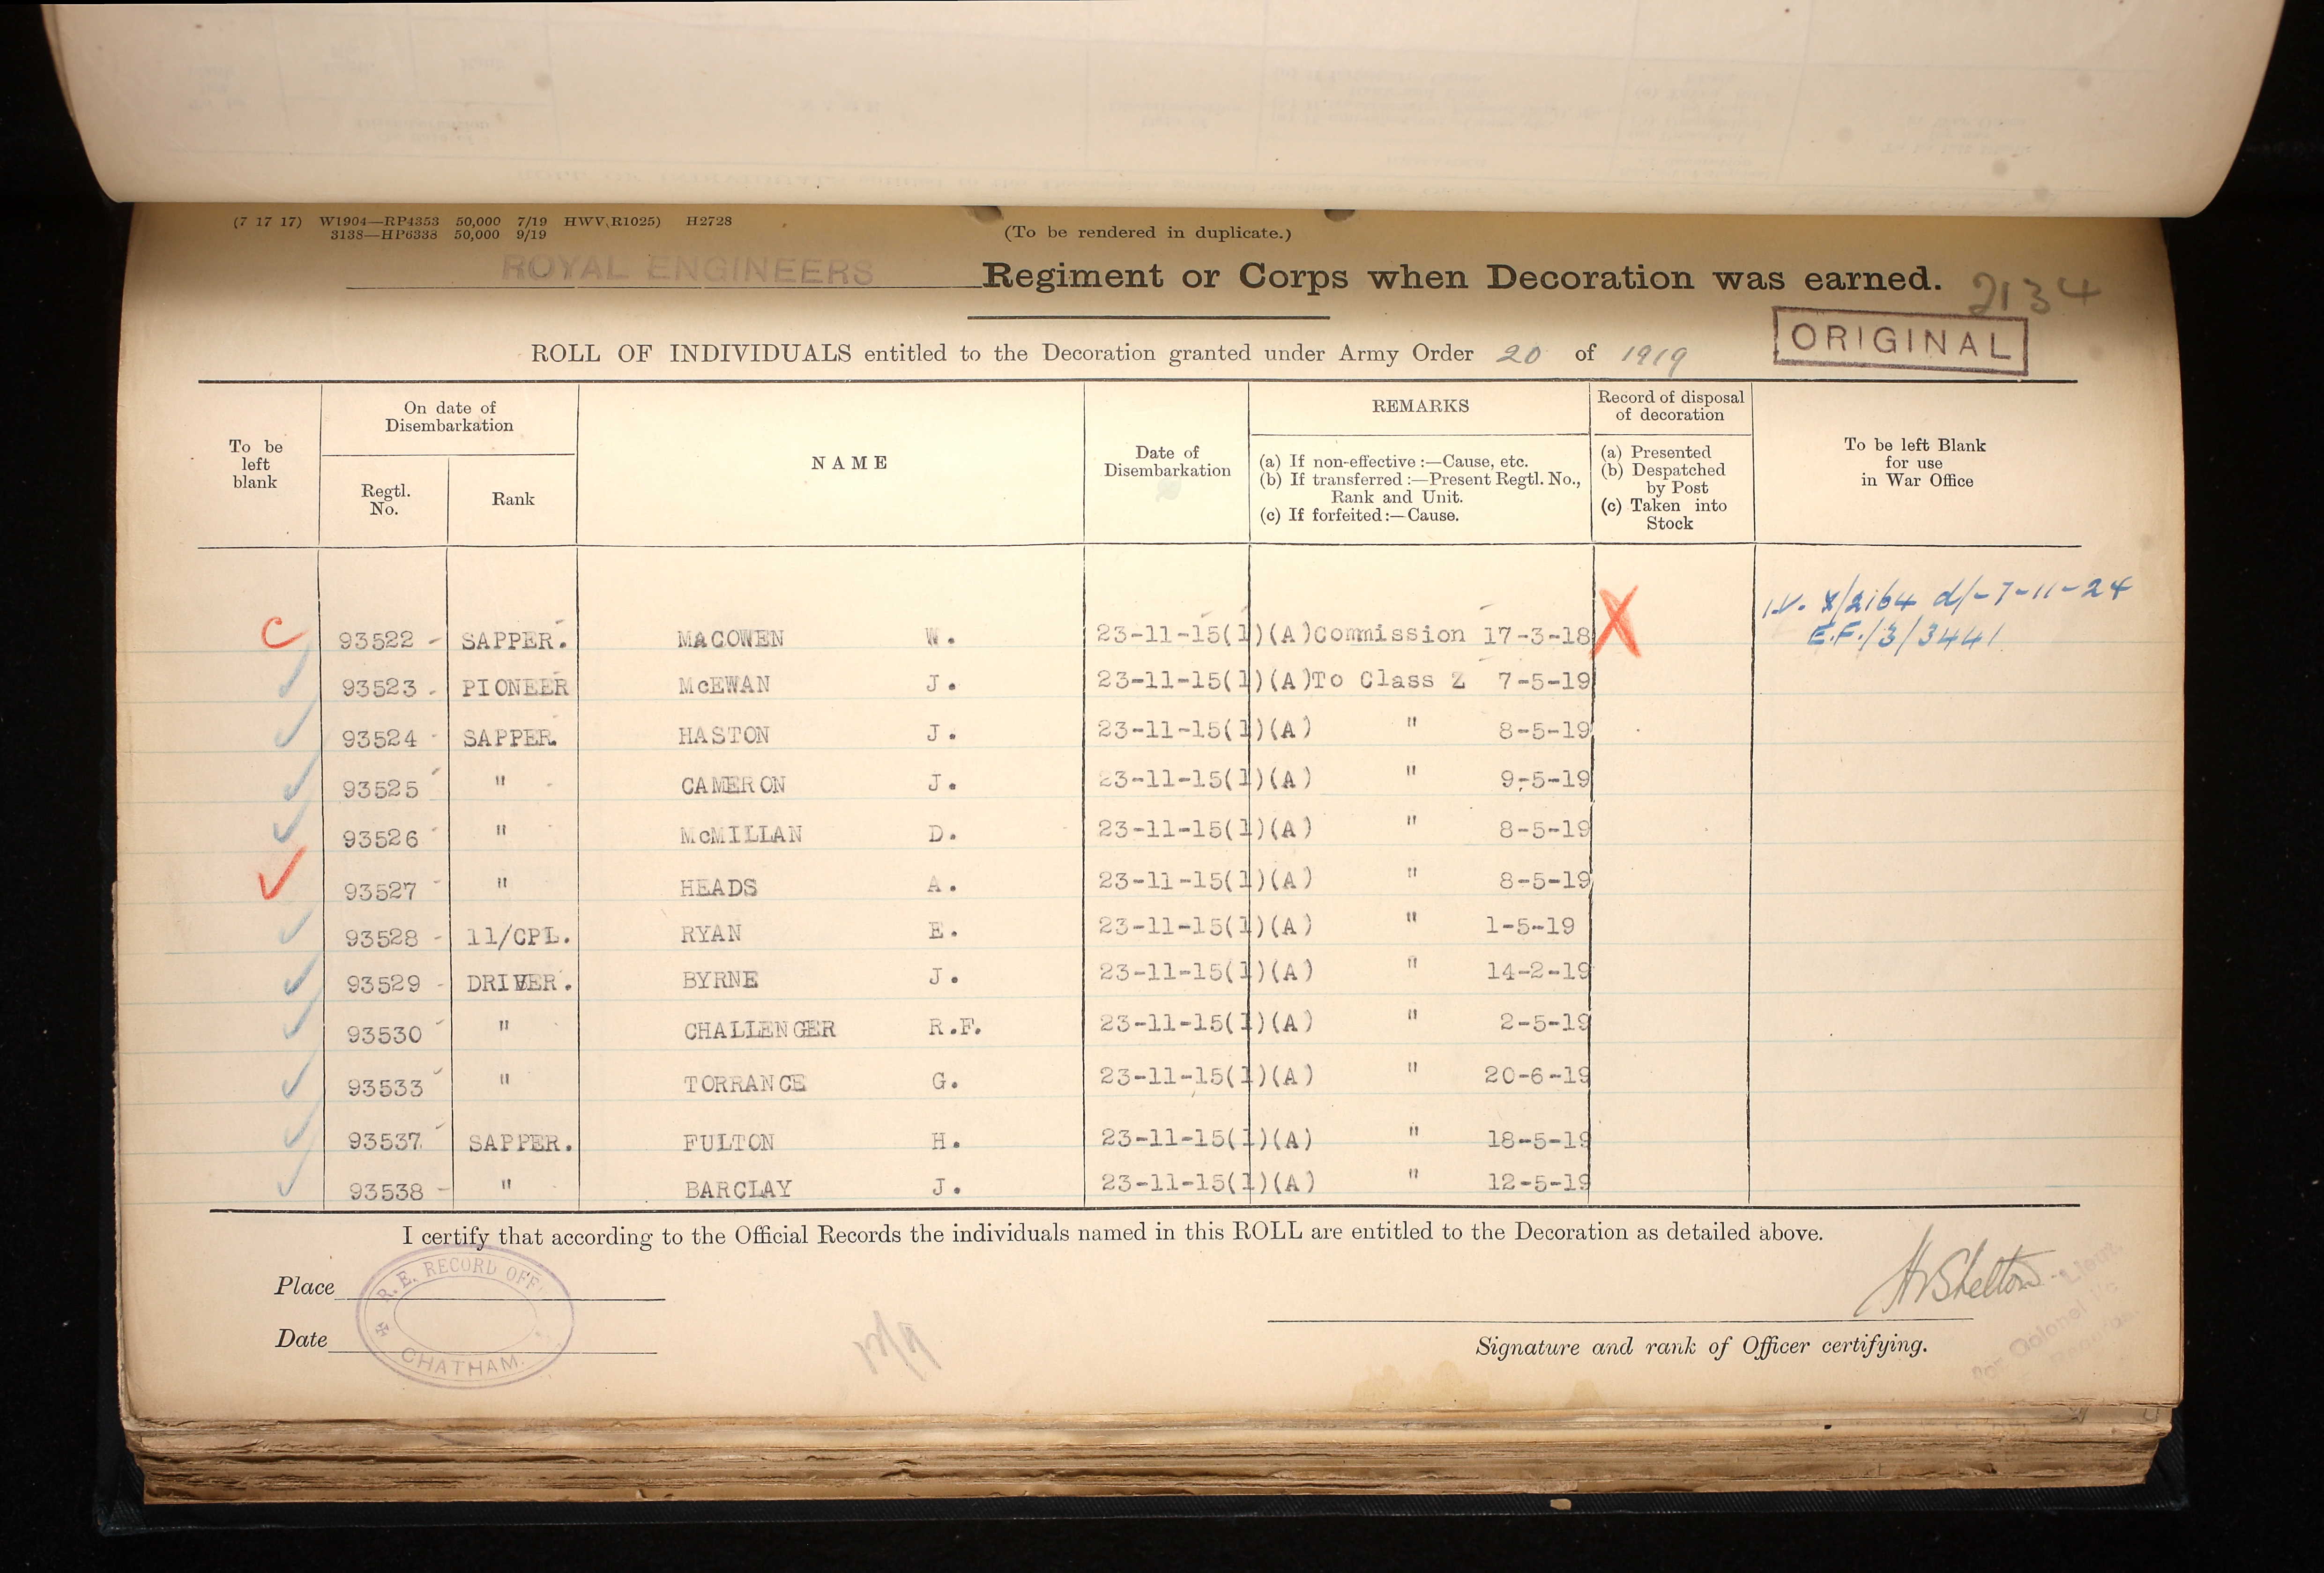 (7 17 17) W1904—RP4353 50,000 7/19 HWV(R1025) H2728
3138—HP6338 50,000 9/19
(To be rendered in duplicate.)
ROYAL ENGINEERS Regiment or Corps when Decoration was earned.
2134
ORIGINAL
ROLL OF INDIVIDUALS entitled to the Decoration granted under Army Order 20 of 1919
To be left blank
On date of Disembarkation
Regtl. No.
Rank
NAME
Date of Disembarkation
REMARKS
(a) If non-effective :—Cause, etc.
(b) If transferred :—Present Regtl. No., Rank and Unit.
(c) If forfeited :—Cause.
Record of disposal of decoration
(a) Presented
(b) Despatched by Post
(c) Taken into Stock
To be left Blank for use in War Office
C 93522 - SAPPER. MACOWEN W. 23-11-15(1)(A)Commission 17-3-18 X
I.V. X/2164 d/- 7-11-24
E.F./3/3441
93523 - PIONEER McEWAN J. 23-11-15(1)(A)To Class Z 7-5-19
93524 - SAPPER HASTON J. 23-11-15(1)(A) " 8-5-19
93525 " CAMERON J. 23-11-15(1)(A) " 9-5-19
93526 " McMILLAN D. 23-11-15(1)(A) " 8-5-19
93527 " HEADS A. 23-11-15(1)(A) " 8-5-19
93528 - 11/CPL. RYAN E. 23-11-15(1)(A) " 1-5-19
93529 - DRIVER. BYRNE J. 23-11-15(1)(A) " 14-2-19
93530 " CHALLENGER R.F. 23-11-15(1)(A) " 2-5-19
93533 " TORRANCE G. 23-11-15(1)(A) " 20-6-19
93537 SAPPER. FULTON H. 23-11-15(1)(A) " 18-5-19
93538 - " BARCLAY J. 23-11-15(1)(A) " 12-5-19
I certify that according to the Official Records the individuals named in this ROLL are entitled to the Decoration as detailed above.
Place
R.E. RECORD OFF
CHATHAM.
Date
Shelton Lieut.
for Colonel i/c
Records.
Signature and rank of Officer certifying.